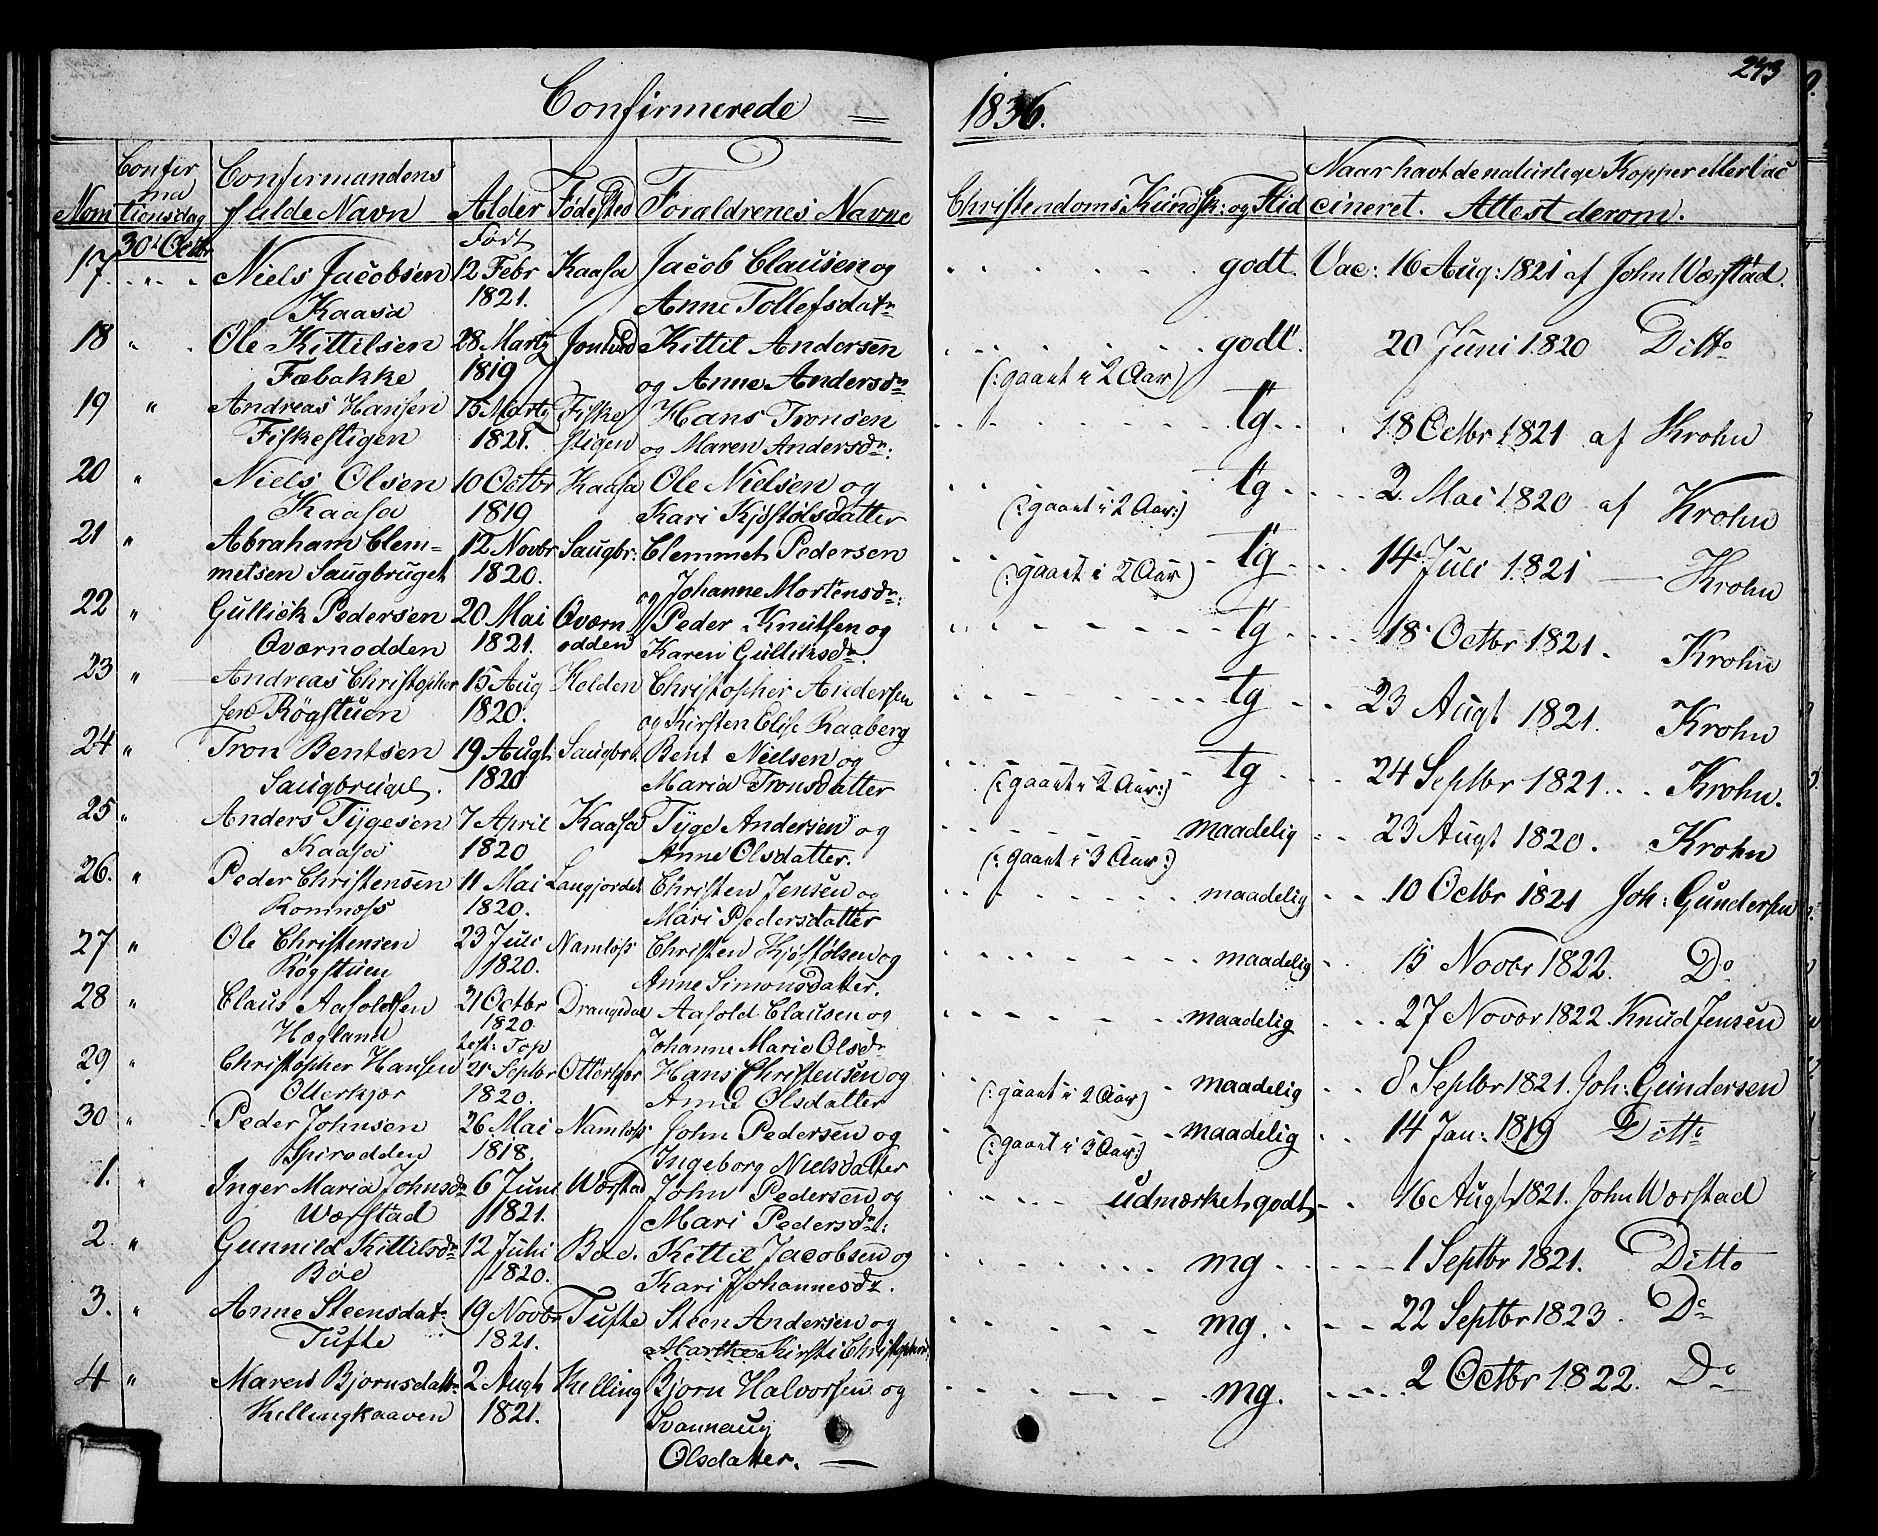 Confirmerede
1836.
243
Confirmationsdag
Nom
Confirmandens fulde Navn
Alder
Fødested
Forældrenes Navne
Christendoms Kundsk: og Flid
Naar havt de naturlige Kopper eller Vaccineret. Attest derom.
30t Octbr
Født
17 Niels Jacobsen 12 Febr Kaasa Jacob Clausen og godt. Vac: 16 Aug: 1821 af John Wærstad.
Kaasa 1821. Anne Tollefsdatr
18 " Ole Kittilsen 28 Martz Kittil Andersen godt. 20 Juni 1820 Ditto
Fæbakke 1819 og Anne Andersdr (: gaaet i 2 Aar)
19 " Andreas Hansen 15 Martz Fiske Hans Tronsen tg 18 Octbr 1821 af Krohn
Fiskestigen 1821. stigen og Maren Andersdr:
20 " Niels Olsen 10 Octbr Kaasa Ole Nielsen og tg 2 Mai 1820 af Krohn
Kaasa 1819 Kari Kjøstolsdatter (: gaaet i 2 Aar:)
21 " Abraham Clem= 12 Novbr Saugbr: Clemmet Pedersen tg 14 Juli 1821 — Krohn
metsen Saugbruget 1820. og Johanne Mortensdr: (: gaaet i 2 Aar)
22 " Gullick Pedersen 20 Mai Qværn Peder Knutsen og tg 18 Octbr 1821. Krohn
Qværnodden 1821. odden Karen Gulliksdr.
23 " Andreas Christopher 15 Aug Holden Christopher Andersen tg 23 Augt 1821. Krohn
sen Røgstuen 1820. og Kirsten Elise Raaberg
24 " Tron Bentsen 19 Augt Saugbr Bent Nielsen og tg 24 Septbr 1821. Krohn.
Saugbruget. 1820 Maria Tronsdatter (: gaaet i 2 Aar:)
25 " Anders Tygesen 7 April Kaasa Tyge Andersen og maadelig 23 Augt 1820. Krohn
Kaasa 1820 Anne Olsdatter. (: gaaet i 3 Aar:)
26. " Peder Christensen 11 Mai Langjordet Christen Jensen og maadelig 10 Octbr 1821 Joh: Gundersen
Romnæss 1820. Mari Pedersdatter
27 " Ole Christensen 23 Juli Namløss Christen Kjøstolsen og maadelig 15 Novbr 1822. Do
Røgstuen 1820. Anne Simonsdatter.
28 " Claus Aasoldsen 21 Octbr Drangedal Aasold Clausen og maadelig 27 Novbr 1822. Knud Jensen
Hægland 1820 Johanne Marie Olsdr
29 " Christopher Hansen 21 Septbr Otterkjær Hans Christensen og maadelig 8 Septbr 1821. Joh: Gundersen
Otterkjær 1820. Anne Olsdatter (: gaaet i 2 Aar)
30 " Peder Johnsen 26 Mai Namløss John Pedersen og maadelig 14 Jan: 1819 Ditto
Spirodden 1818. Ingeborg Nielsdatter (: gaaet i 3 Aar:)
1. " Inger Maria Johnsdr 6 Juni Wærstad John Pedersen og udmærket godt 16 Augt 1821. John Wærstad
Wærstad 1821. Mari Pedersdr:
2. " Gunnild Kittilsdr 12 Juli Bøe. Kittil Jacobsen og mg 1 Septbr 1821. Ditto
Bøe 1820. Kari Johannesdr.
3. " Anne Steensdatr 19 Novbr Tufte Steen Andersen og mg. 22 Septbr 1823. Do
Tufte 1821. Marthe Kirsti Christophersdr:
4 " Maren Bjørnsdattr 2 Augt Killing Bjørn Halvorsen og mg. 2 Octbr 1822. Do
Killingkaaven 1821. Svannaug
Olsdatter.